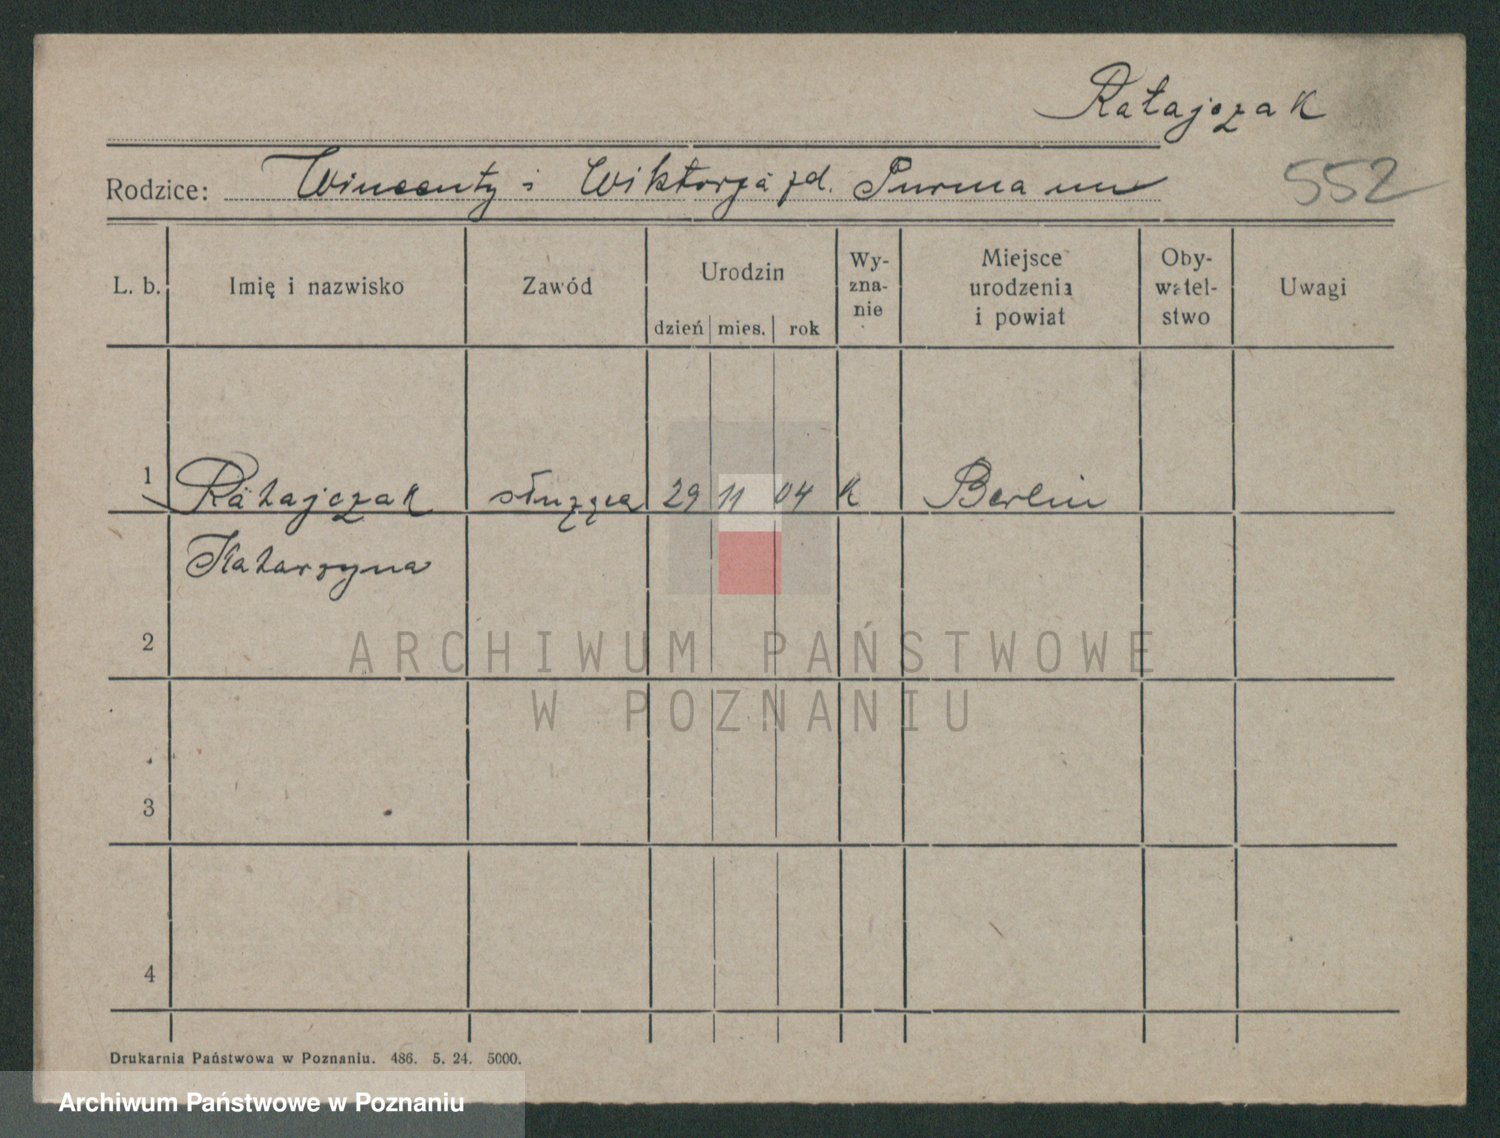 Ratajczak
Rodzice: Wincenty i Wiktorja zd. Purmann
552
L. b. Imię i nazwisko Zawód Urodzin Wy- Miejsce Oby- Uwagi
zna- urodzenia watel-
dzień mies. rok nie i powiat stwo
1 Ratajczak służąca 29 11 04 K Berlin
Katarzyna
2
ARCHIWUM PAŃSTWOWE
W POZNANIU
3
4
Drukarnia Państwowa w Poznaniu. 486. 5. 24. 5000.
Archiwum Państwowe w Poznaniu